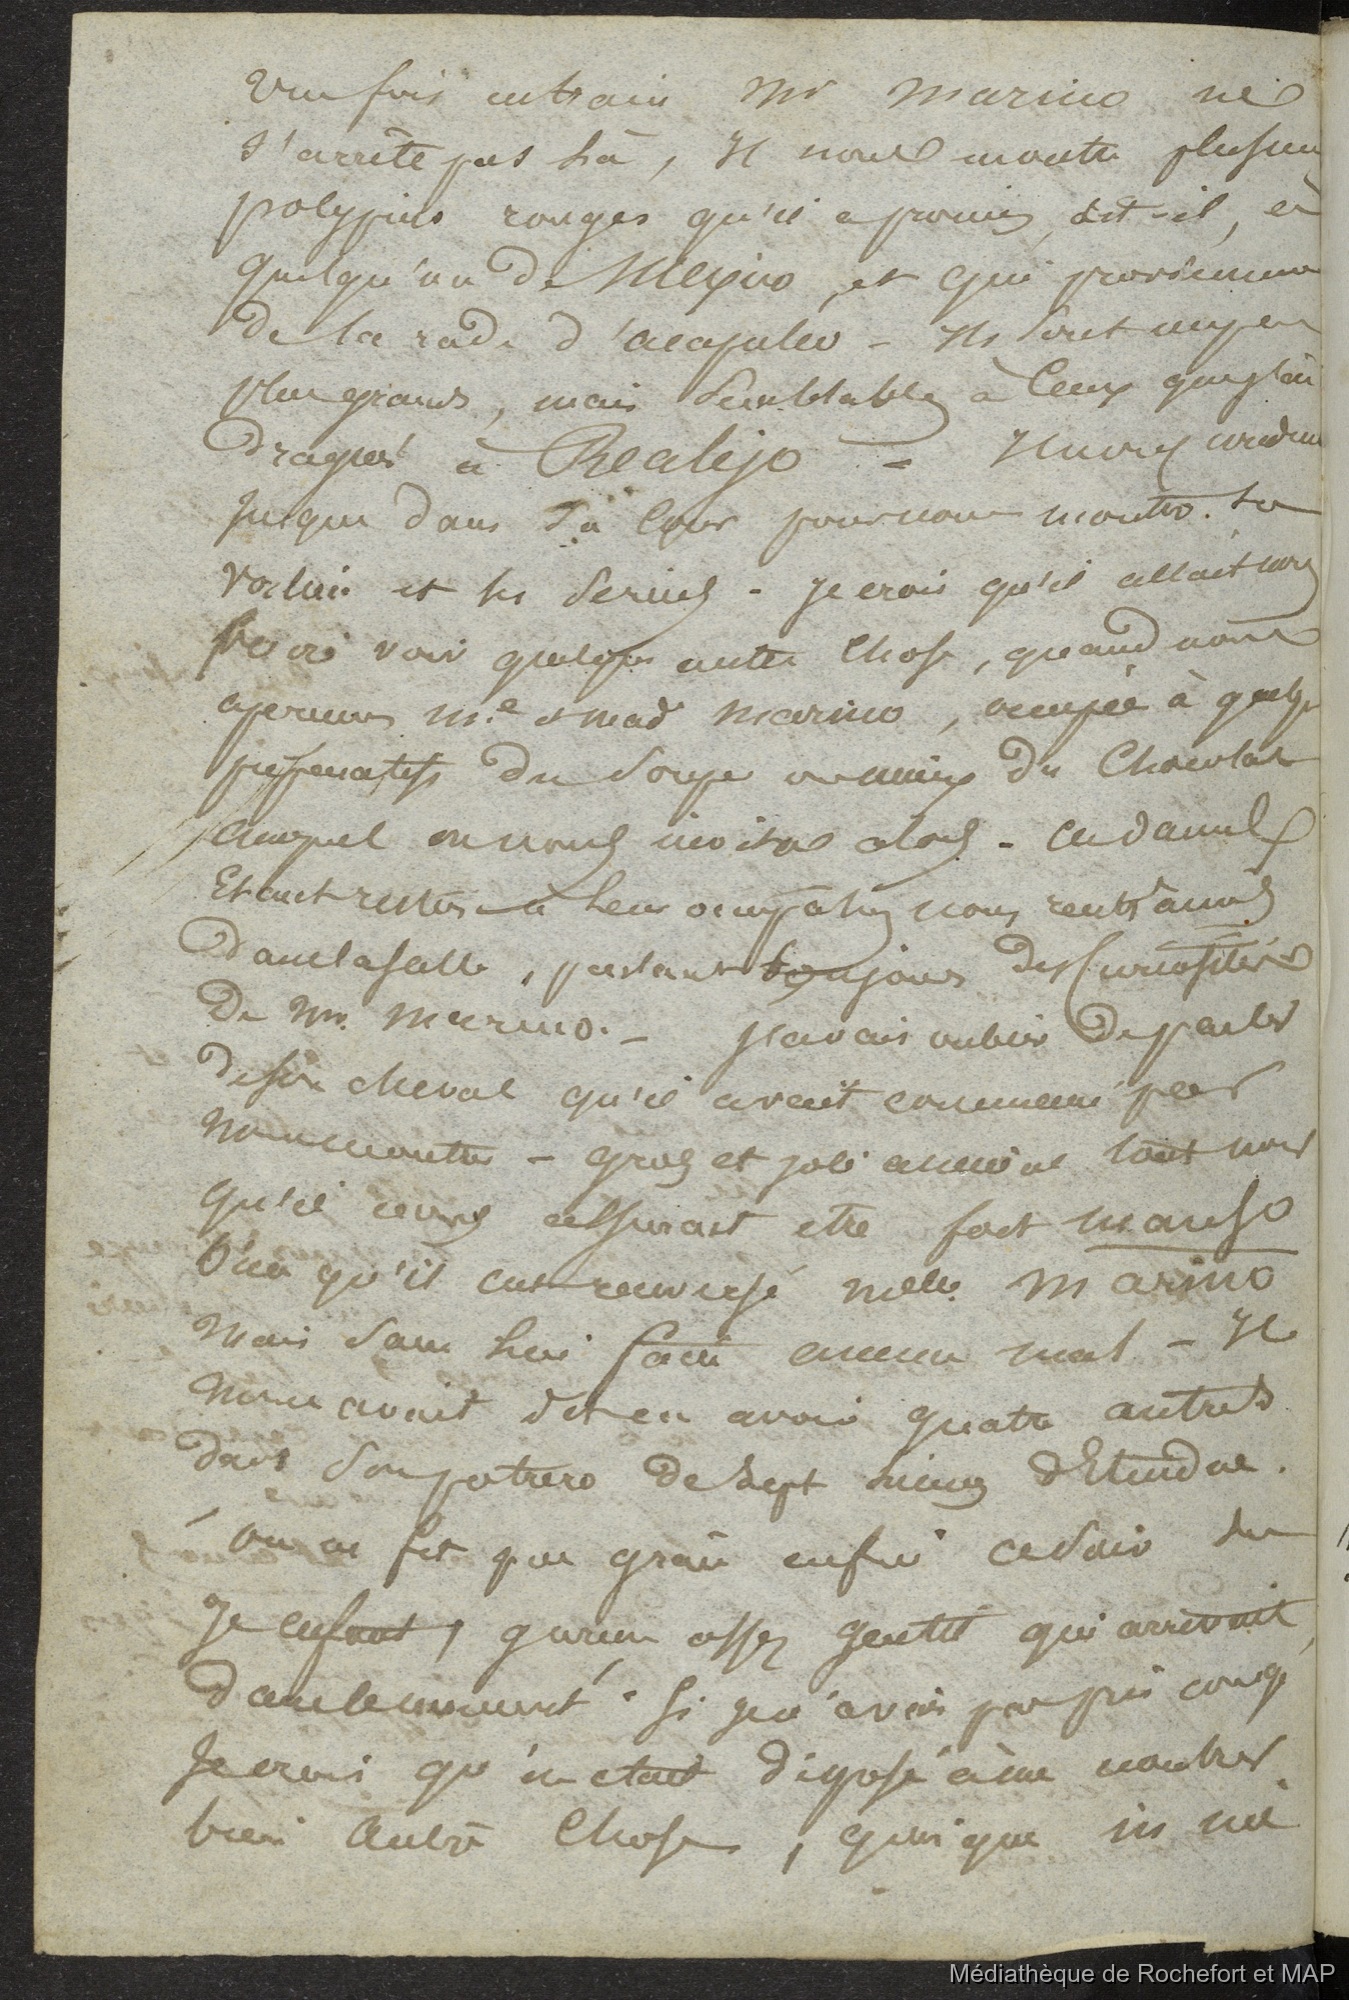 Une fois entrain Mr Marino ne
s'arrête pas là, Il nous montre plusieurs
polypiers rouges qu'il a promis, dit-il, à
quelqu'un de Mexico, et qui proviennent
de la rade d'acapulco - Ils sont un peu
plus grands, mais semblables à ceux que j'ai
dragués à Realejo - Il nous conduit
jusque dans sa cour pour nous montrer sa
et ses serins - je crois qu'il allait nous
faire voir quelque autre chose, quand nous
aperçumes me et mad Marino, occupée à quelques
préparatifs du souper ou mieux du Chocolat
auquel on nous invita alors - ces dames
Etant restées à leur occupation nous rentrâmes
dans la salle, parlant toujours des Curiosités
de Mr. Marino. - J'avais oublié de parler
de son cheval qu'il avait commencé par
nous montrer - gros et joli animal tout noir
qu'il nous assurait etre fort manso
bien qu'il eut renversé melle Marino
mais sans lui faire aucun mal - Il
nous avait dit en avoir quatre autres
dans son potrero de sept lieues d'Etendue.
on ne fit pas grâce enfin ce soir du
je enfant, garçon assez gentil qui arrivait
dans le moment. Si je n'avais pas pris congé
je crois qu'on etait disposé à me montrer
bien autre chose, quoique in né
Médiathèque de Rochefort et MAP